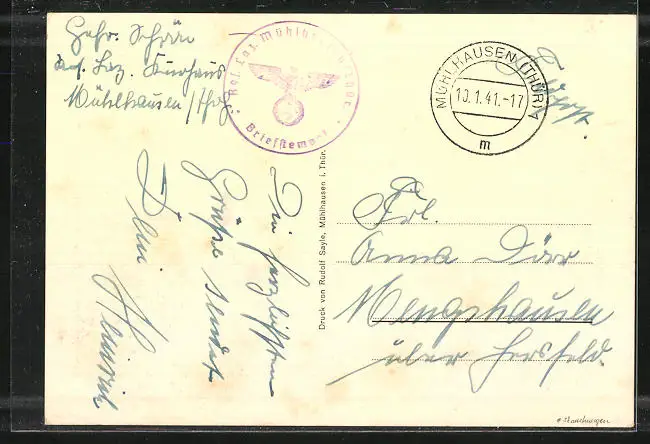 Gefr. Schörr
Res. Laz. Kurhaus
Mühlhausen / Thür.
Res. Laz. Mühlhausen
Briefstempel
MÜHLHAUSEN (THÜR)
10.1.41.-17
m
Feldpost.
Die herzlichsten
Grüße sendet
Dein Heinrich
Druck von Rudolf Sayle, Mühlhausen i. Thür.
Frl.
Anna Dörr
Mengshausen
über Hersfeld.